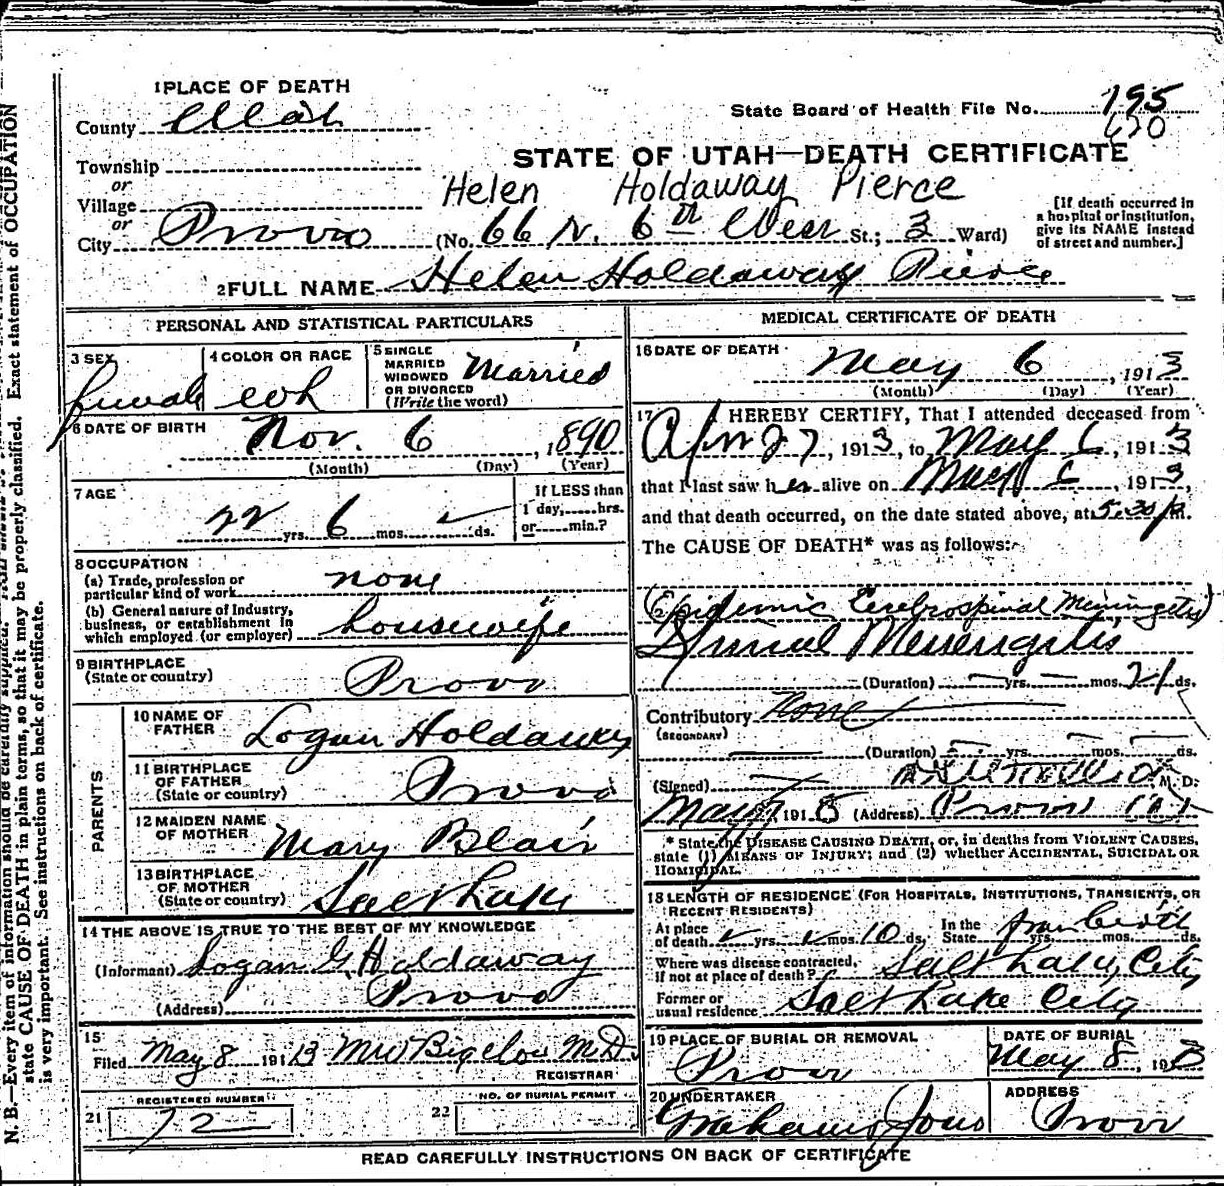 1 PLACE OF DEATH
County Utah
State Board of Health File No. 195
620
Township
or
Village
or
City Provo
STATE OF UTAH—DEATH CERTIFICATE
Helen Holdaway Pierce
(No. 66 N. 6th West St.; 3 Ward)
[If death occurred in a hospital or institution, give its NAME instead of street and number.]
2 FULL NAME Helen Holdaway Pierce
PERSONAL AND STATISTICAL PARTICULARS
3 SEX female
4 COLOR OR RACE wh
5 SINGLE MARRIED WIDOWED OR DIVORCED (Write the word) Married
6 DATE OF BIRTH Nov. 6, 1890
(Month) (Day) (Year)
7 AGE 22 yrs. 6 mos. ds.
If LESS than 1 day, hrs. or min.?
8 OCCUPATION
(a) Trade, profession or particular kind of work none
(b) General nature of Industry, business, or establishment in which employed (or employer) housewife
9 BIRTHPLACE (State or country) Provo
PARENTS
10 NAME OF FATHER Logan Holdaway
11 BIRTHPLACE OF FATHER (State or country) Provo
12 MAIDEN NAME OF MOTHER Mary Blair
13 BIRTHPLACE OF MOTHER (State or country) Salt Lake
14 THE ABOVE IS TRUE TO THE BEST OF MY KNOWLEDGE
(Informant) Logan G. Holdaway
(Address) Provo
15 Filed May 8 1913 MW Bigelow M.D.
REGISTRAR
REGISTERED NUMBER
21 72
NO. OF BURIAL PERMIT
22
MEDICAL CERTIFICATE OF DEATH
16 DATE OF DEATH May 6, 1913
(Month) (Day) (Year)
17 I HEREBY CERTIFY, That I attended deceased from
Apr 27, 1913, to May 6, 1913
that I last saw her alive on May 6, 1913,
and that death occurred, on the date stated above, at 5:30 P.M.
The CAUSE OF DEATH* was as follows:
(Epidemic Cerebrospinal Meningetis)
Spinal Menengitis
(Duration) yrs. mos. 21 ds.
Contributory None
(SECONDARY)
(Duration) yrs. mos. ds.
(Signed) M. D.
May 7, 1913 (Address) Provo
* State the DISEASE CAUSING DEATH, or, in deaths from VIOLENT CAUSES, state (1) MEANS OF INJURY; and (2) whether ACCIDENTAL, SUICIDAL OR HOMICIDAL.
18 LENGTH OF RESIDENCE (FOR HOSPITALS, INSTITUTIONS, TRANSIENTS, OR RECENT RESIDENTS)
At place of death yrs. mos. 10 ds. In the State from birth yrs. mos. ds.
Where was disease contracted, if not at place of death? Salt Lake City
Former or usual residence Salt Lake City
19 PLACE OF BURIAL OR REMOVAL Provo
DATE OF BURIAL May 8, 1913
20 UNDERTAKER
ADDRESS Provo
READ CAREFULLY INSTRUCTIONS ON BACK OF CERTIFICATE
N. B.—Every item of information should be carefully supplied.
state CAUSE OF DEATH in plain terms, so that it may be properly classified. Exact statement of OCCUPATION
is very important. See instructions on back of certificate.